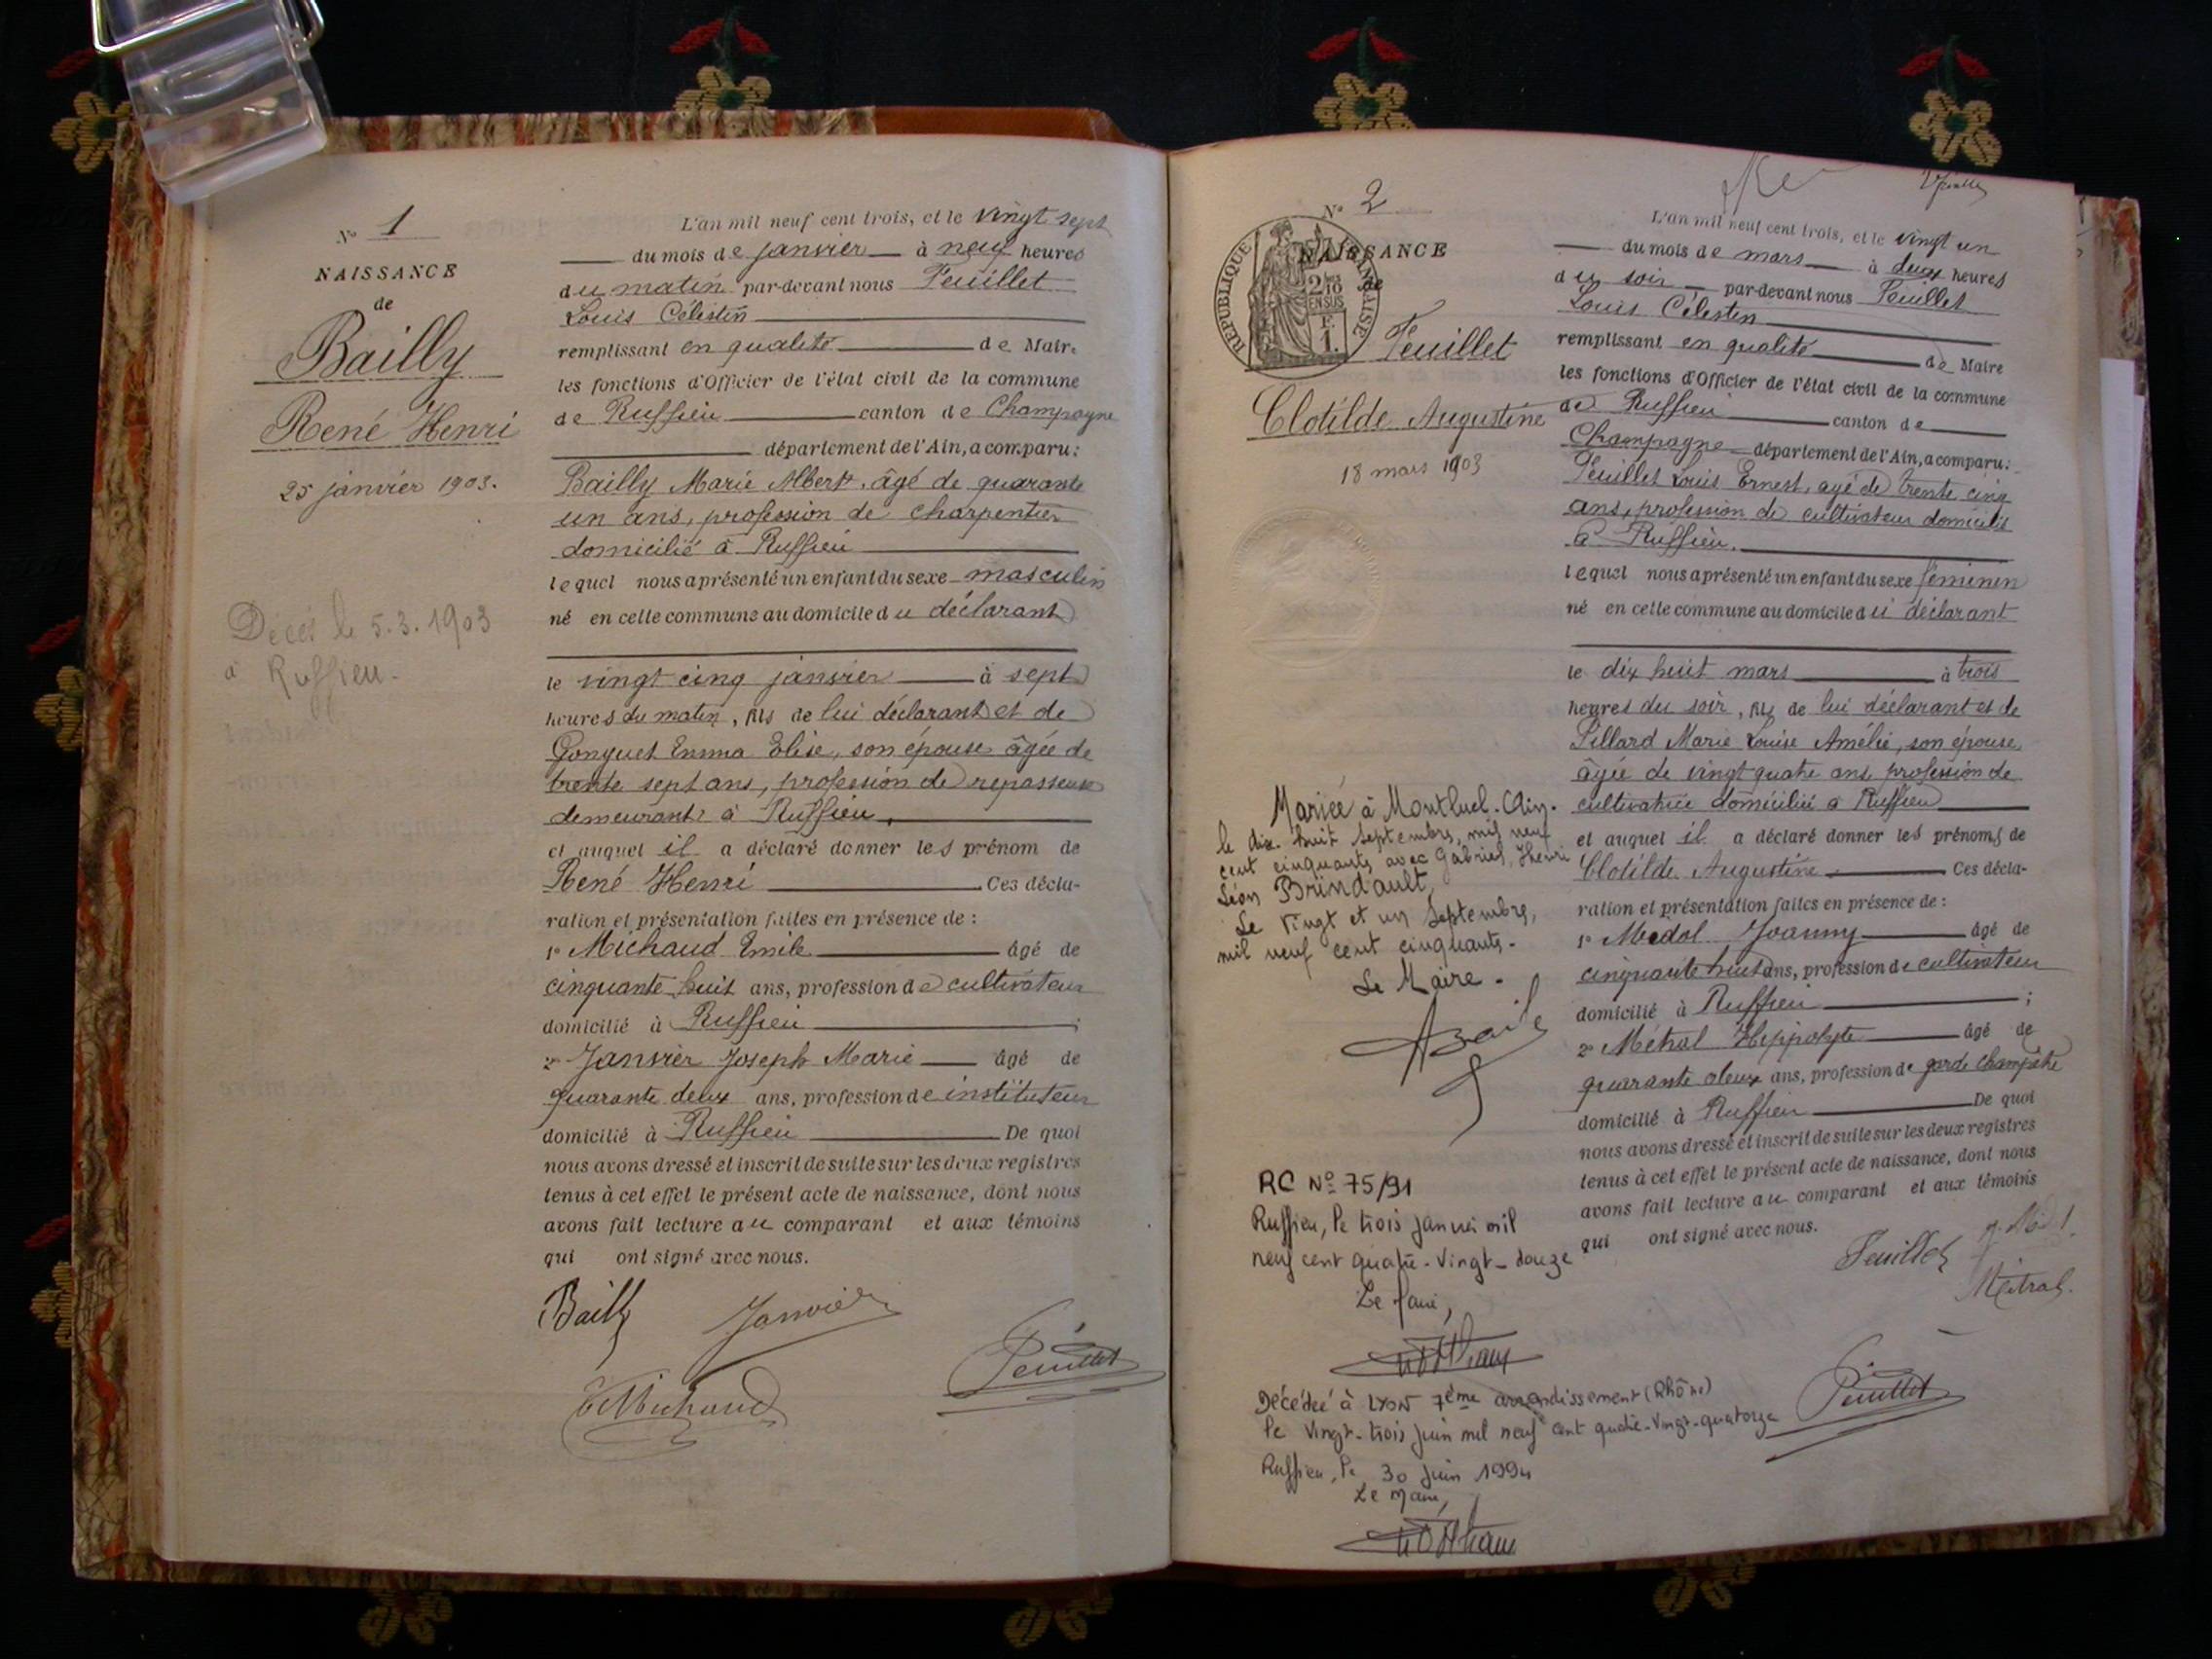 N° 1
NAISSANCE
de
Bailly
René Henri
25 janvier 1903.
Décès le 5.3.1903
à Ruffieu.
L'an mil neuf cent trois, et le vingt sept
du mois de janvier à neuf heures
du matin par-devant nous Feuillet
Louis Célestin
remplissant en qualité de Maire
les fonctions d'Officier de l'état civil de la commune
de Ruffieu canton de Champagne
département de l'Ain, a comparu:
Bailly Marie Albert, âgé de quarante
un ans, profession de charpentier
domicilié à Ruffieu
lequel nous a présenté un enfant du sexe masculin
né en cette commune au domicile du déclarant
le vingt cinq janvier à sept
heures du matin, fils de lui déclarant et de
Gonguet Emma Elise, son épouse âgée de
trente sept ans, profession de repasseuse
demeurant à Ruffieu,
et auquel il a déclaré donner les prénom de
René Henri Ces décla-
ration et présentation faites en présence de :
1° Michaud Emile âgé de
cinquante huit ans, profession de cultivateur
domicilié à Ruffieu ;
2° Janvier Joseph Marie âgé de
quarante deux ans, profession de instituteur
domicilié à Ruffieu De quoi
nous avons dressé et inscrit de suite sur les deux registres
tenus à cet effet le présent acte de naissance, dont nous
avons fait lecture au comparant et aux témoins
qui ont signé avec nous.
Bailly Janvier
E Michaud Feuillet
N° 2
NAISSANCE
de
REPUBLIQUE FRANÇAISE
2/10 EN SUS
F. 1.
Feuillet
Clotilde Augustine
18 mars 1903
Mariée à Montluel-Ain.
le dix huit septembre, mil neuf
cent cinquante avec Gabriel, Henri
Léon Brindault,
Le vingt et un Septembre,
mil neuf cent cinquante.
Le Maire.
RC N° 75/91
Ruffieu, le trois janvier mil
neuf cent quatre-vingt-douze
Le Maire,
Décédée à LYON 7ème arrondissement (Rhône)
le vingt-trois juin mil neuf cent quatre-vingt-quatorze
Ruffieu, le 30 juin 1994
Le Maire,
L'an mil neuf cent trois, et le vingt un
du mois de mars à deux heures
du soir par-devant nous Feuillet
Louis Célestin
remplissant en qualité de Maire
les fonctions d'Officier de l'état civil de la commune
de Ruffieu canton de
Champagne département de l'Ain, a comparu:
Feuillet Louis Ernest, agé de trente cinq
ans, profession de cultivateur domicilié
à Ruffieu.
lequel nous a présenté un enfant du sexe féminin
né en cette commune au domicile du déclarant
le dix huit mars à trois
heures du soir, fils de lui déclarant et de
Pillard Marie Louise Amélie, son épouse,
âgée de vingt quatre ans profession de
cultivatrice domiciliée à Ruffieu
et auquel il a déclaré donner les prénoms de
Clotilde Augustine. Ces décla-
ration et présentation faites en présence de :
1° Midol Joanny âgé de
cinquante huit ans, profession de cultivateur
domicilié à Ruffieu ;
2° Métral Hippolyte âgé de
quarante deux ans, profession de garde champêtre
domicilié à Ruffieu De quoi
nous avons dressé et inscrit de suite sur les deux registres
tenus à cet effet le présent acte de naissance, dont nous
avons fait lecture au comparant et aux témoins
qui ont signé avec nous.
Feuillet
Métral.
Feuillet